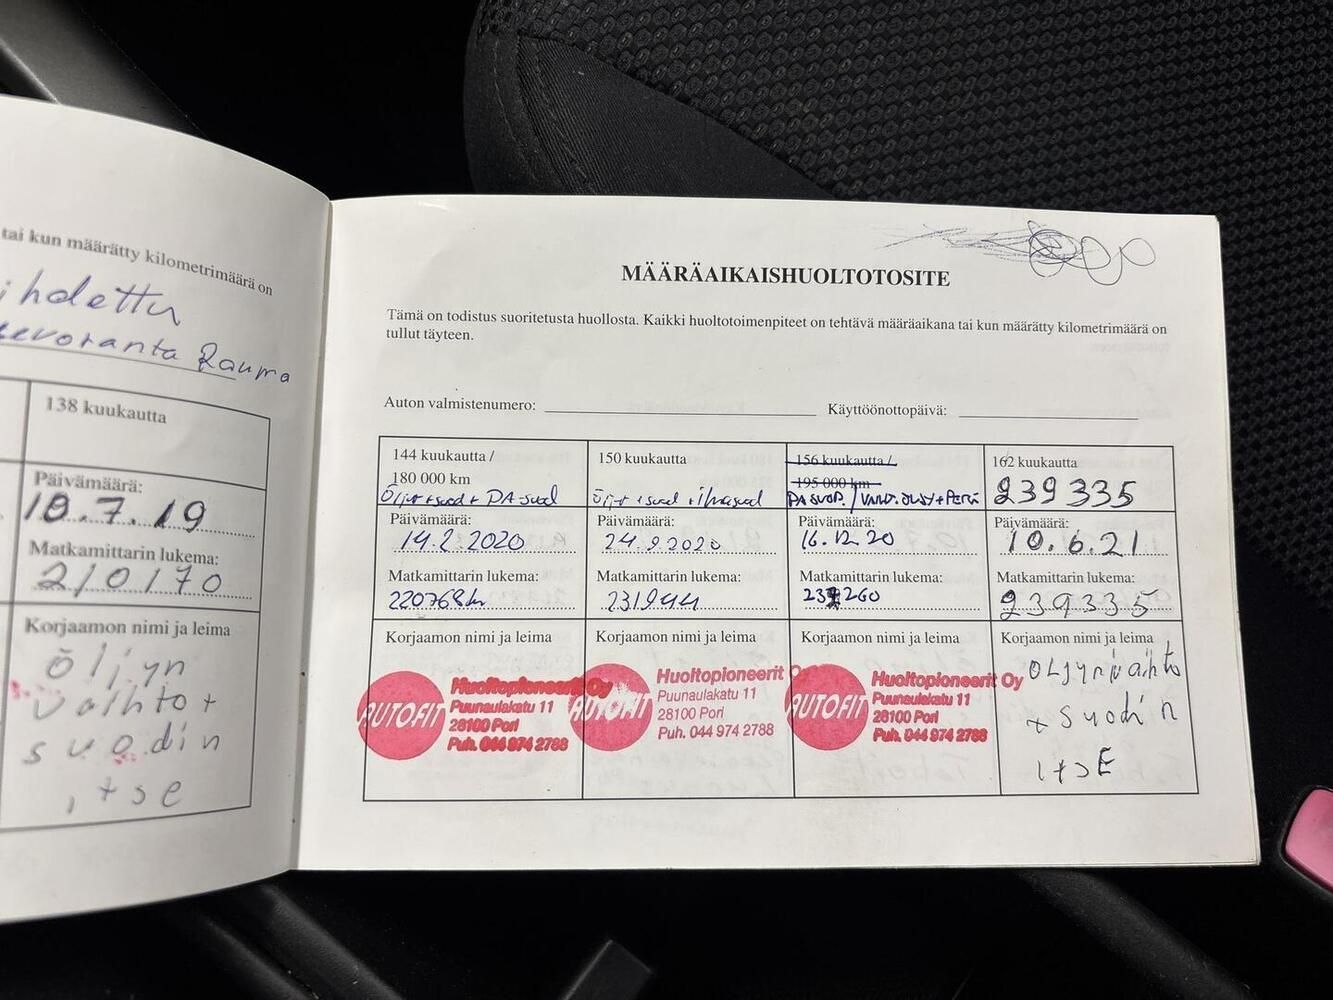 tai kun määrätty kilometrimäärä on
ihdettu
Rauma
138 kuukautta
Päivämäärä:
18.7.19
Matkamittarin lukema:
210170
Korjaamon nimi ja leima
öljyn
vaihto +
suodin
itse
MÄÄRÄAIKAISHUOLTOTOSITE
Tämä on todistus suoritetusta huollosta. Kaikki huoltotoimenpiteet on tehtävä määräaikana tai kun määrätty kilometrimäärä on
tullut täyteen.
Auton valmistenumero:
Käyttöönottopäivä:
144 kuukautta /
180 000 km
Öljyt + suod + PA-suod
Päivämäärä:
14.2.2020
Matkamittarin lukema:
220768km
Korjaamon nimi ja leima
AUTOFIT
Huoltopioneerit Oy
Puunaulakatu 11
28100 Pori
Puh. 044 974 2788
150 kuukautta
Öljyt + suod + ilmasuod
Päivämäärä:
24.9.2020
Matkamittarin lukema:
231944
Korjaamon nimi ja leima
AUTOFIT
Huoltopioneerit Oy
Puunaulakatu 11
28100 Pori
Puh. 044 974 2788
156 kuukautta /
195 000 km
PA SUOD. /
Päivämäärä:
16.12.20
Matkamittarin lukema:
Korjaamon nimi ja leima
AUTOFIT
Huoltopioneerit Oy
Puunaulakatu 11
28100 Pori
Puh. 044 974 2788
162 kuukautta
239335
Päivämäärä:
10.6.21
Matkamittarin lukema:
239335
Korjaamon nimi ja leima
OLJynvaihto
+ suodin
itsE